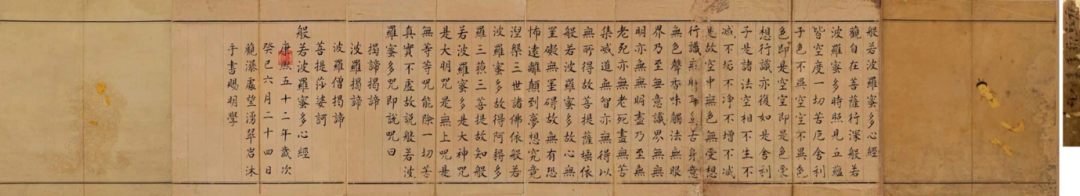 般若波羅蜜多心經
觀自在菩薩行深般若
波羅蜜多時照見五蘊
皆空度一切苦厄舍利
子色不異空空不異色
色即是空空即是色受
想行識亦復如是舍利
子是諸法空相不生不
滅不垢不淨不增不減
是故空中無色無受想
行識無眼耳鼻舌身意
無色聲香味觸法無眼
界乃至無意識界無無
明亦無無明盡乃至無
老死亦無老死盡無苦
集滅道無智亦無得以
無所得故菩提薩埵依
般若波羅蜜多故心無
罣礙無罣礙故無有恐
怖遠離顛倒夢想究竟
涅槃三世諸佛依般若
波羅蜜多故得阿耨多
羅三藐三菩提故知般
若波羅蜜多是大神咒
是大明咒是無上咒是
無等等咒能除一切苦
真實不虛故說般若波
羅蜜多咒即說咒曰
揭諦揭諦
波羅揭諦
波羅僧揭諦
菩提莎婆訶
般若波羅蜜多心經
康熙五十二年歲次
癸巳六月二十四日
觀瀑處望湧翠岩沐
手書賜明學